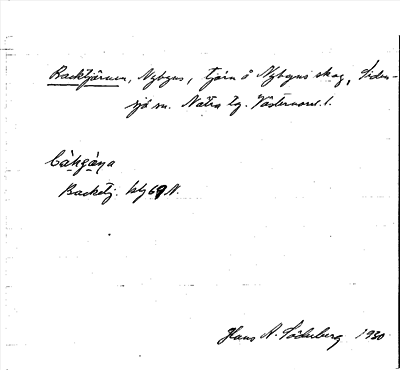 Backtjärnen, Nybyns, tjärn å Nybyns skog, Siden-
sjö sn. Nätra tg. Västernorrl. l.
Backtj. bly 69 N.
Hans A. Söderberg 1930